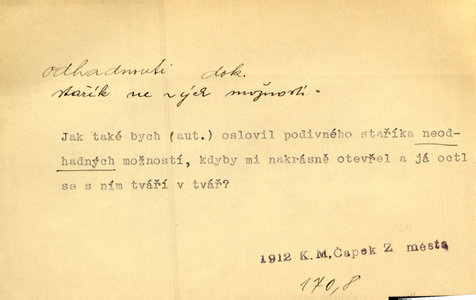 odhadnouti dok.
stařík ne-ných možností.
Jak také bych (aut.) oslovil podivného staříka neod-
hadných možností, kdyby mi nakrásně otevřel a já octl
se s ním tváří v tvář?
1912 K.M.Čapek Z města
170,8